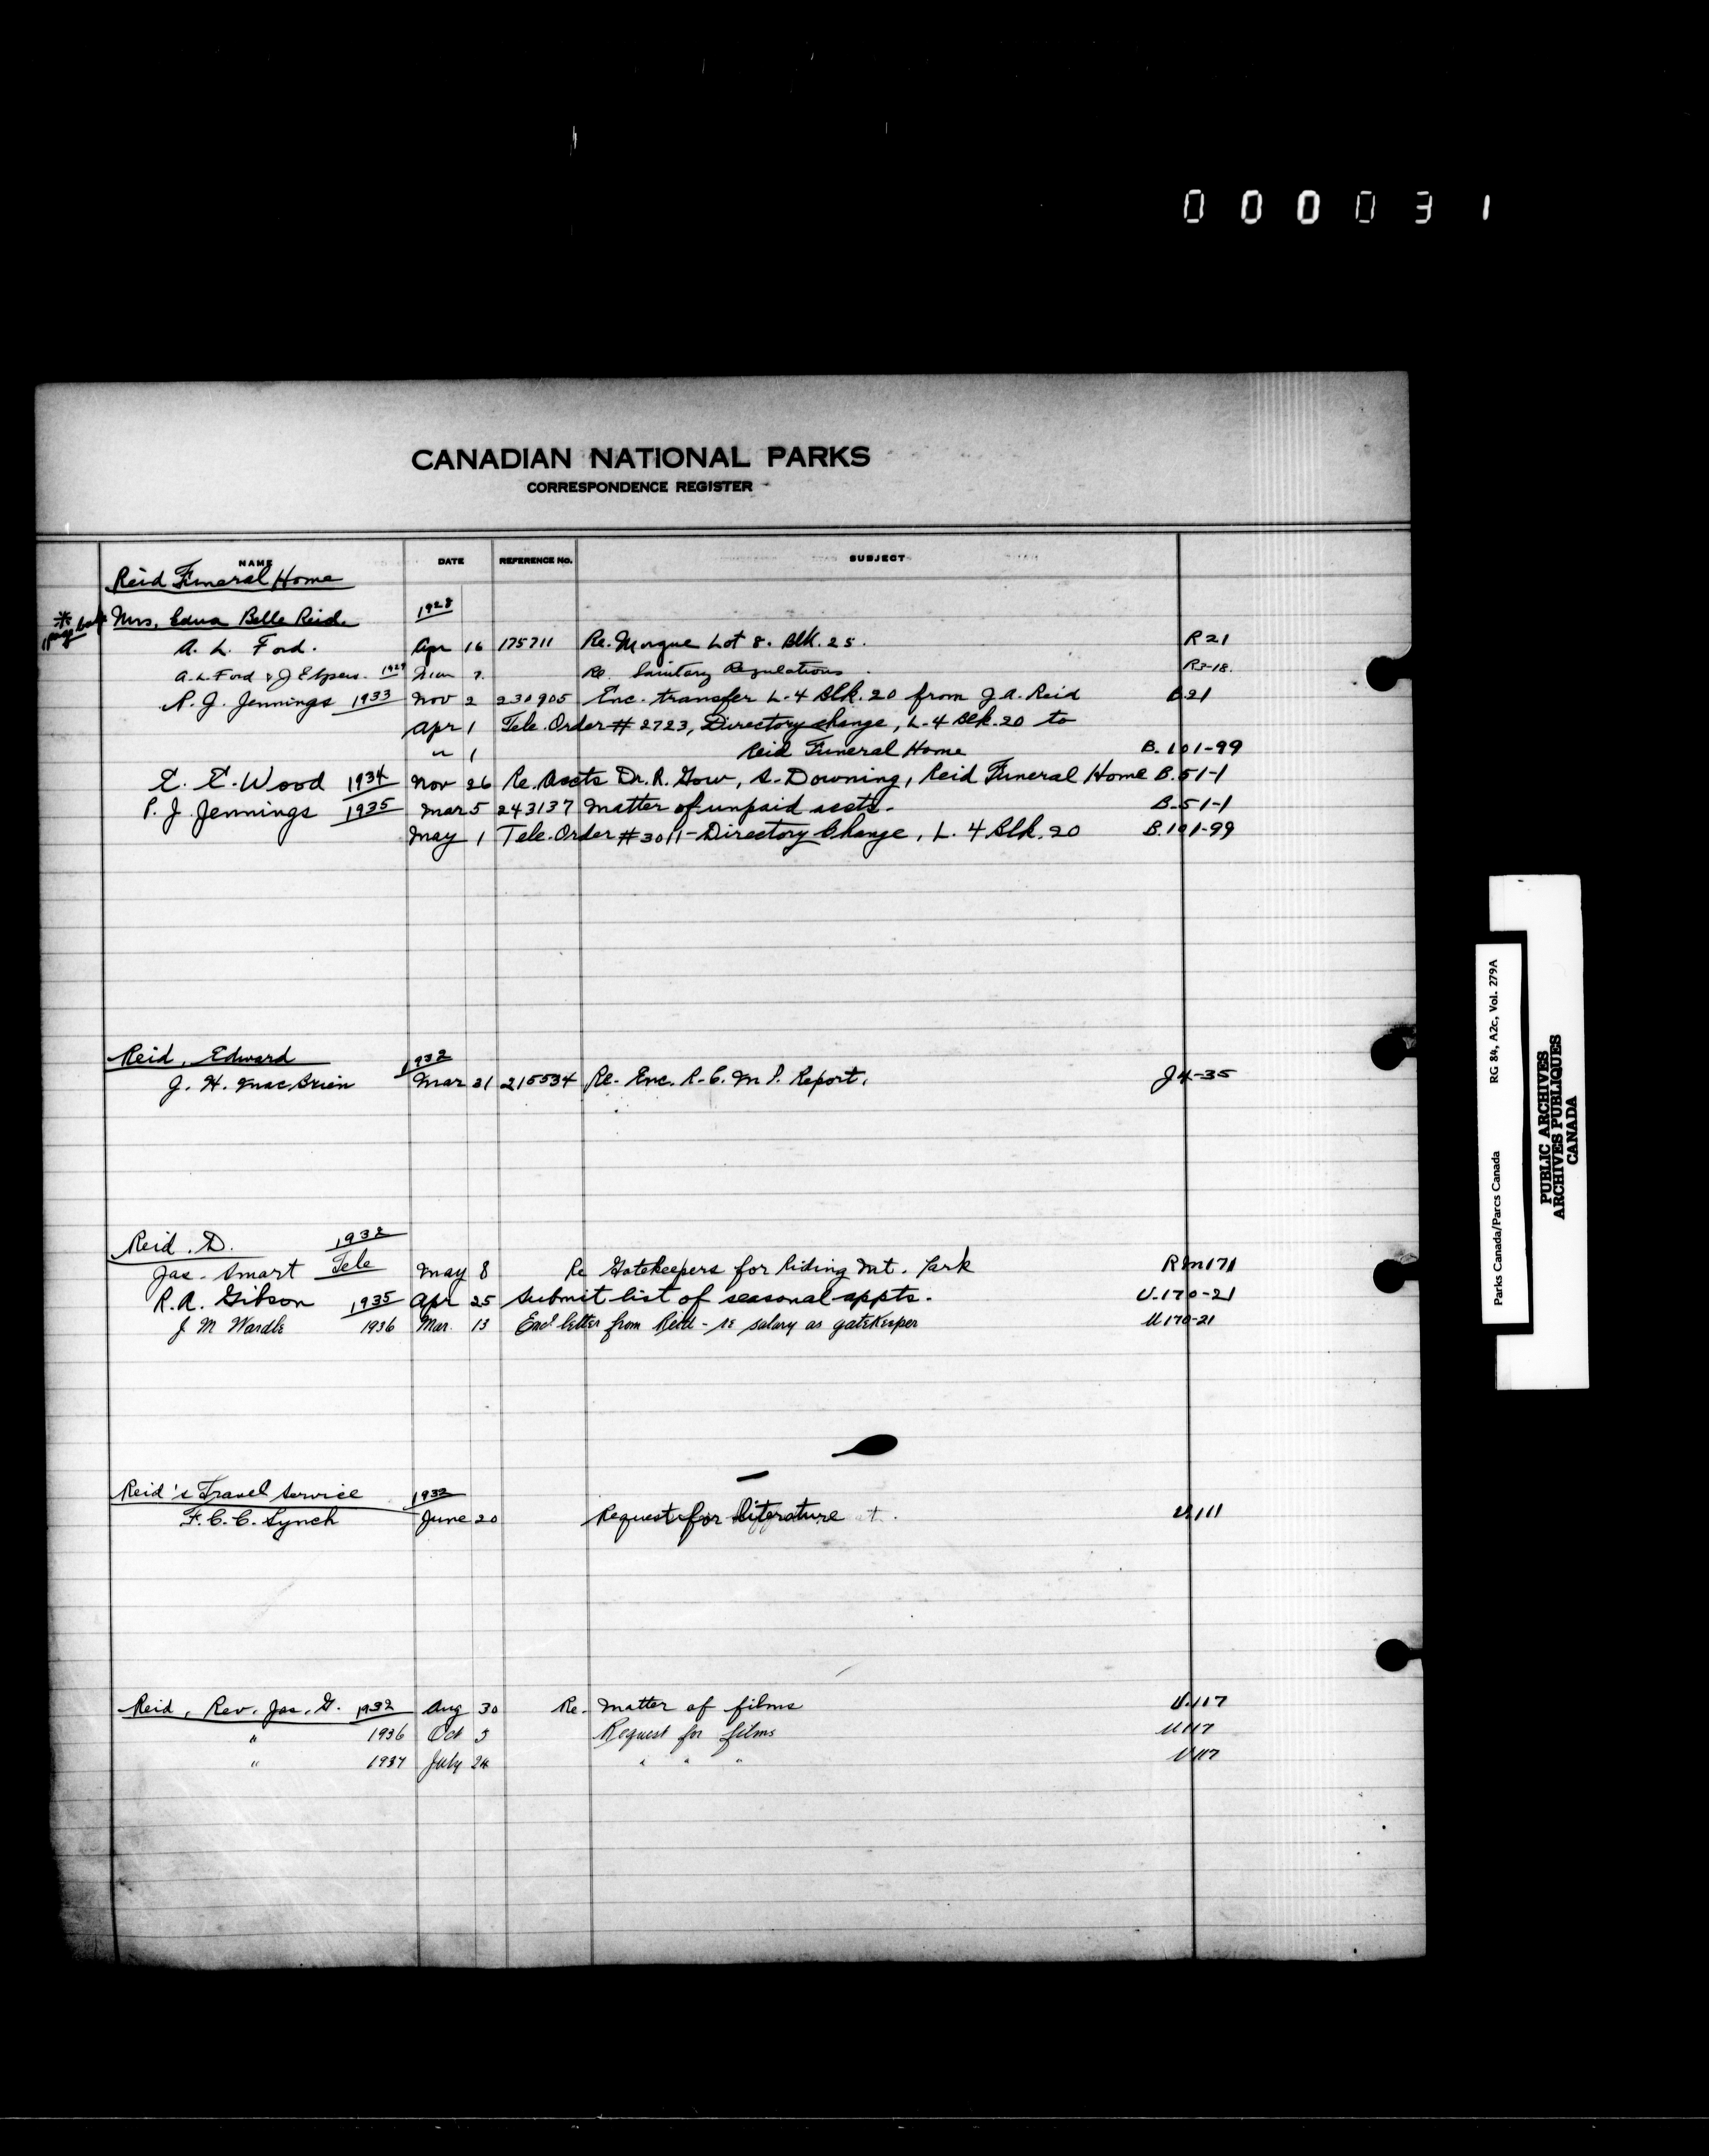 000031
CANADIAN NATIONAL PARKS
CORRESPONDENCE REGISTER
NAME DATE REFERENCE NO. SUBJECT
Reid Funeral Home
Mrs. Edna Belle Reid. 1928
A. L. Ford. Apr 16 175711 Re. Morgue Lot 8. Blk. 25. R 21
A. L. Ford & J 1929 7. Re. Sanitary Regulations R3-18.
P. J. Jennings 1933 Nov 2 230905 Enc. transfer L. 4 Blk. 20 from J. A. Reid B21
Apr 1 Tele. Order # 2723, Directory change, L. 4 Blk. 20 to
" 1 Reid Funeral Home B. 101-99
E. E. Wood 1934 Nov 26 Re. Accts Dr. R. Gow, S. Downing, Reid Funeral Home B. 51-1
P. J. Jennings 1935 Mar 5 243137 Matter of unpaid accts. B-51-1
May 1 Tele. Order #3011 - Directory Change, L. 4 Blk. 20 B. 101-99
Reid, Edward 1932
J. H. MacBrien Mar 31 215534 Re. Enc. R. C. M P. Report. J4-35
Reid, D. 1932
Jas. Smart Tele May 8 Re Gatekeepers for Riding Mt. Park RM171
R. A. Gibson 1935 Apr 25 Submit list of seasonal appts. U. 170-21
J M Wardle 1936 Mar. 13 Encl letter from Reid - re salary as gatekeeper U 170-21
Reid's Travel Service 1932
F. C. C. Lynch June 20 Request for literature U 111
Reid, Rev. Jas. G. 1932 Aug 30 Re. Matter of films U. 117
" 1936 Oct 3 Request for films U 117
" 1937 July 24 " " " U 117
Parks Canada/Parcs Canada RG 84, A2c, Vol. 279A
PUBLIC ARCHIVES
ARCHIVES PUBLIQUES
CANADA